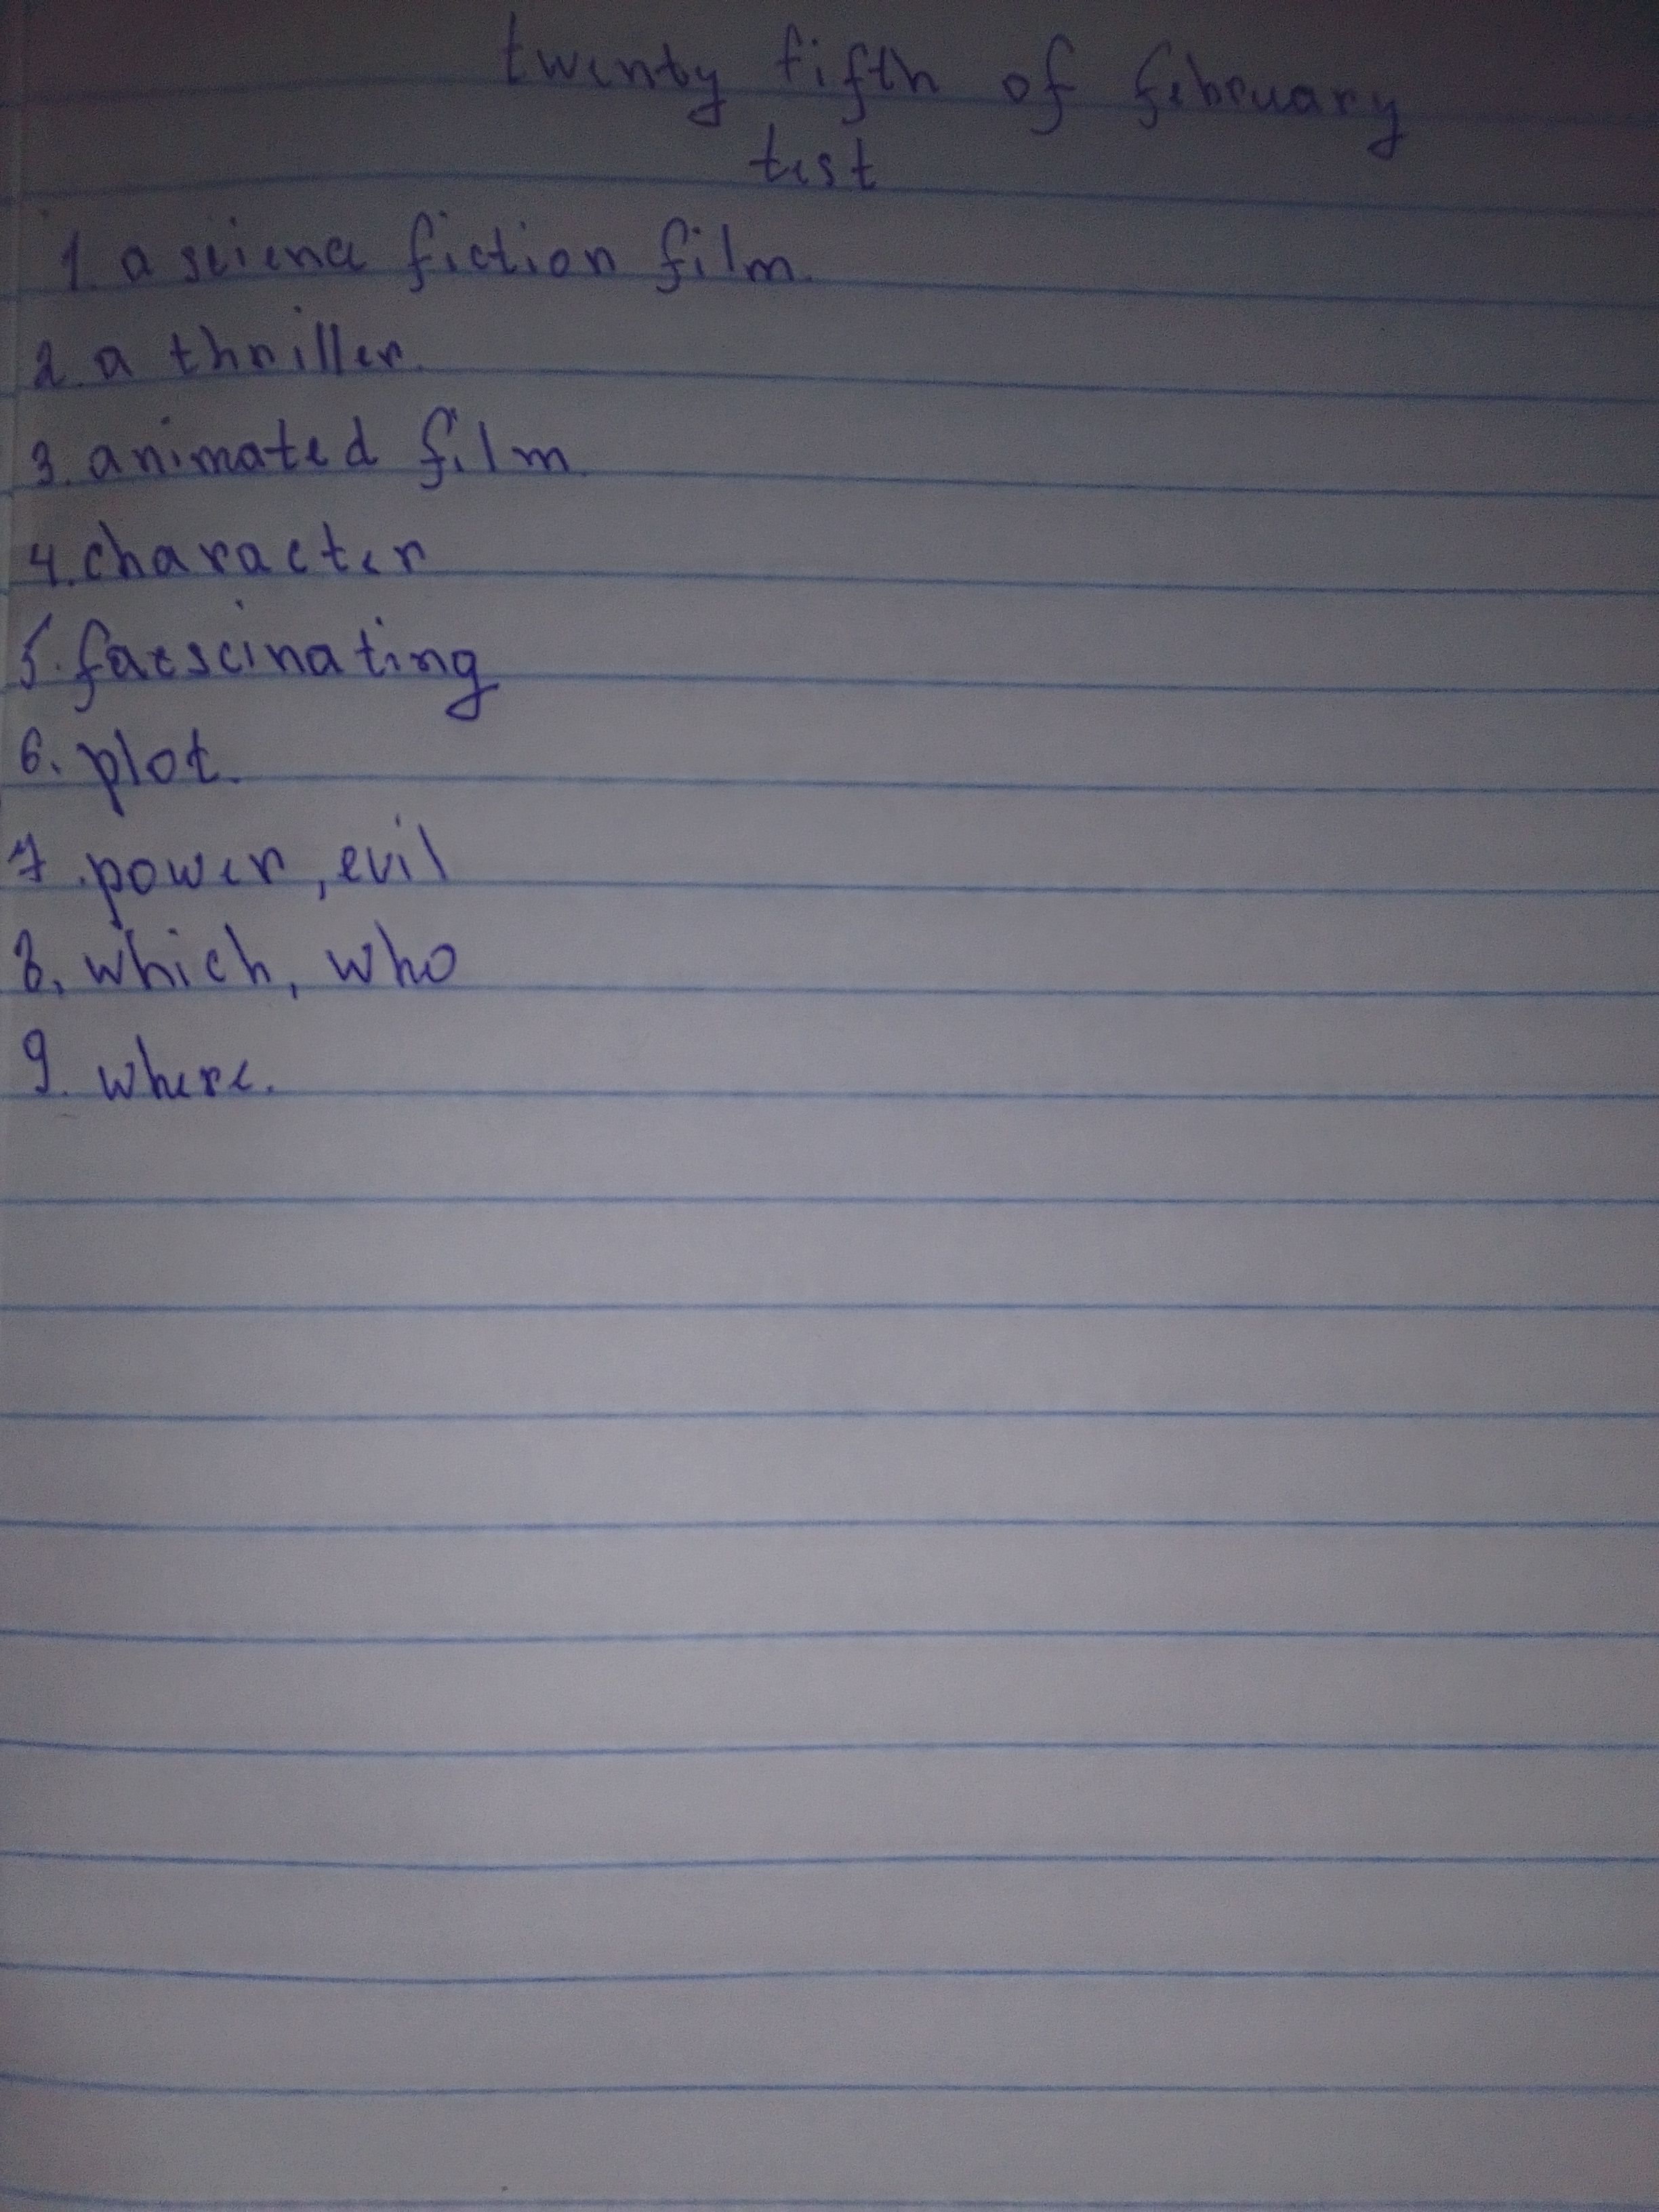 twenty fifth of february
test
1. a science fiction film.
2. a thriller.
3. animated film
4. character
5. faescinating
6. plot.
7. power, evil
8. which, who
9. where.